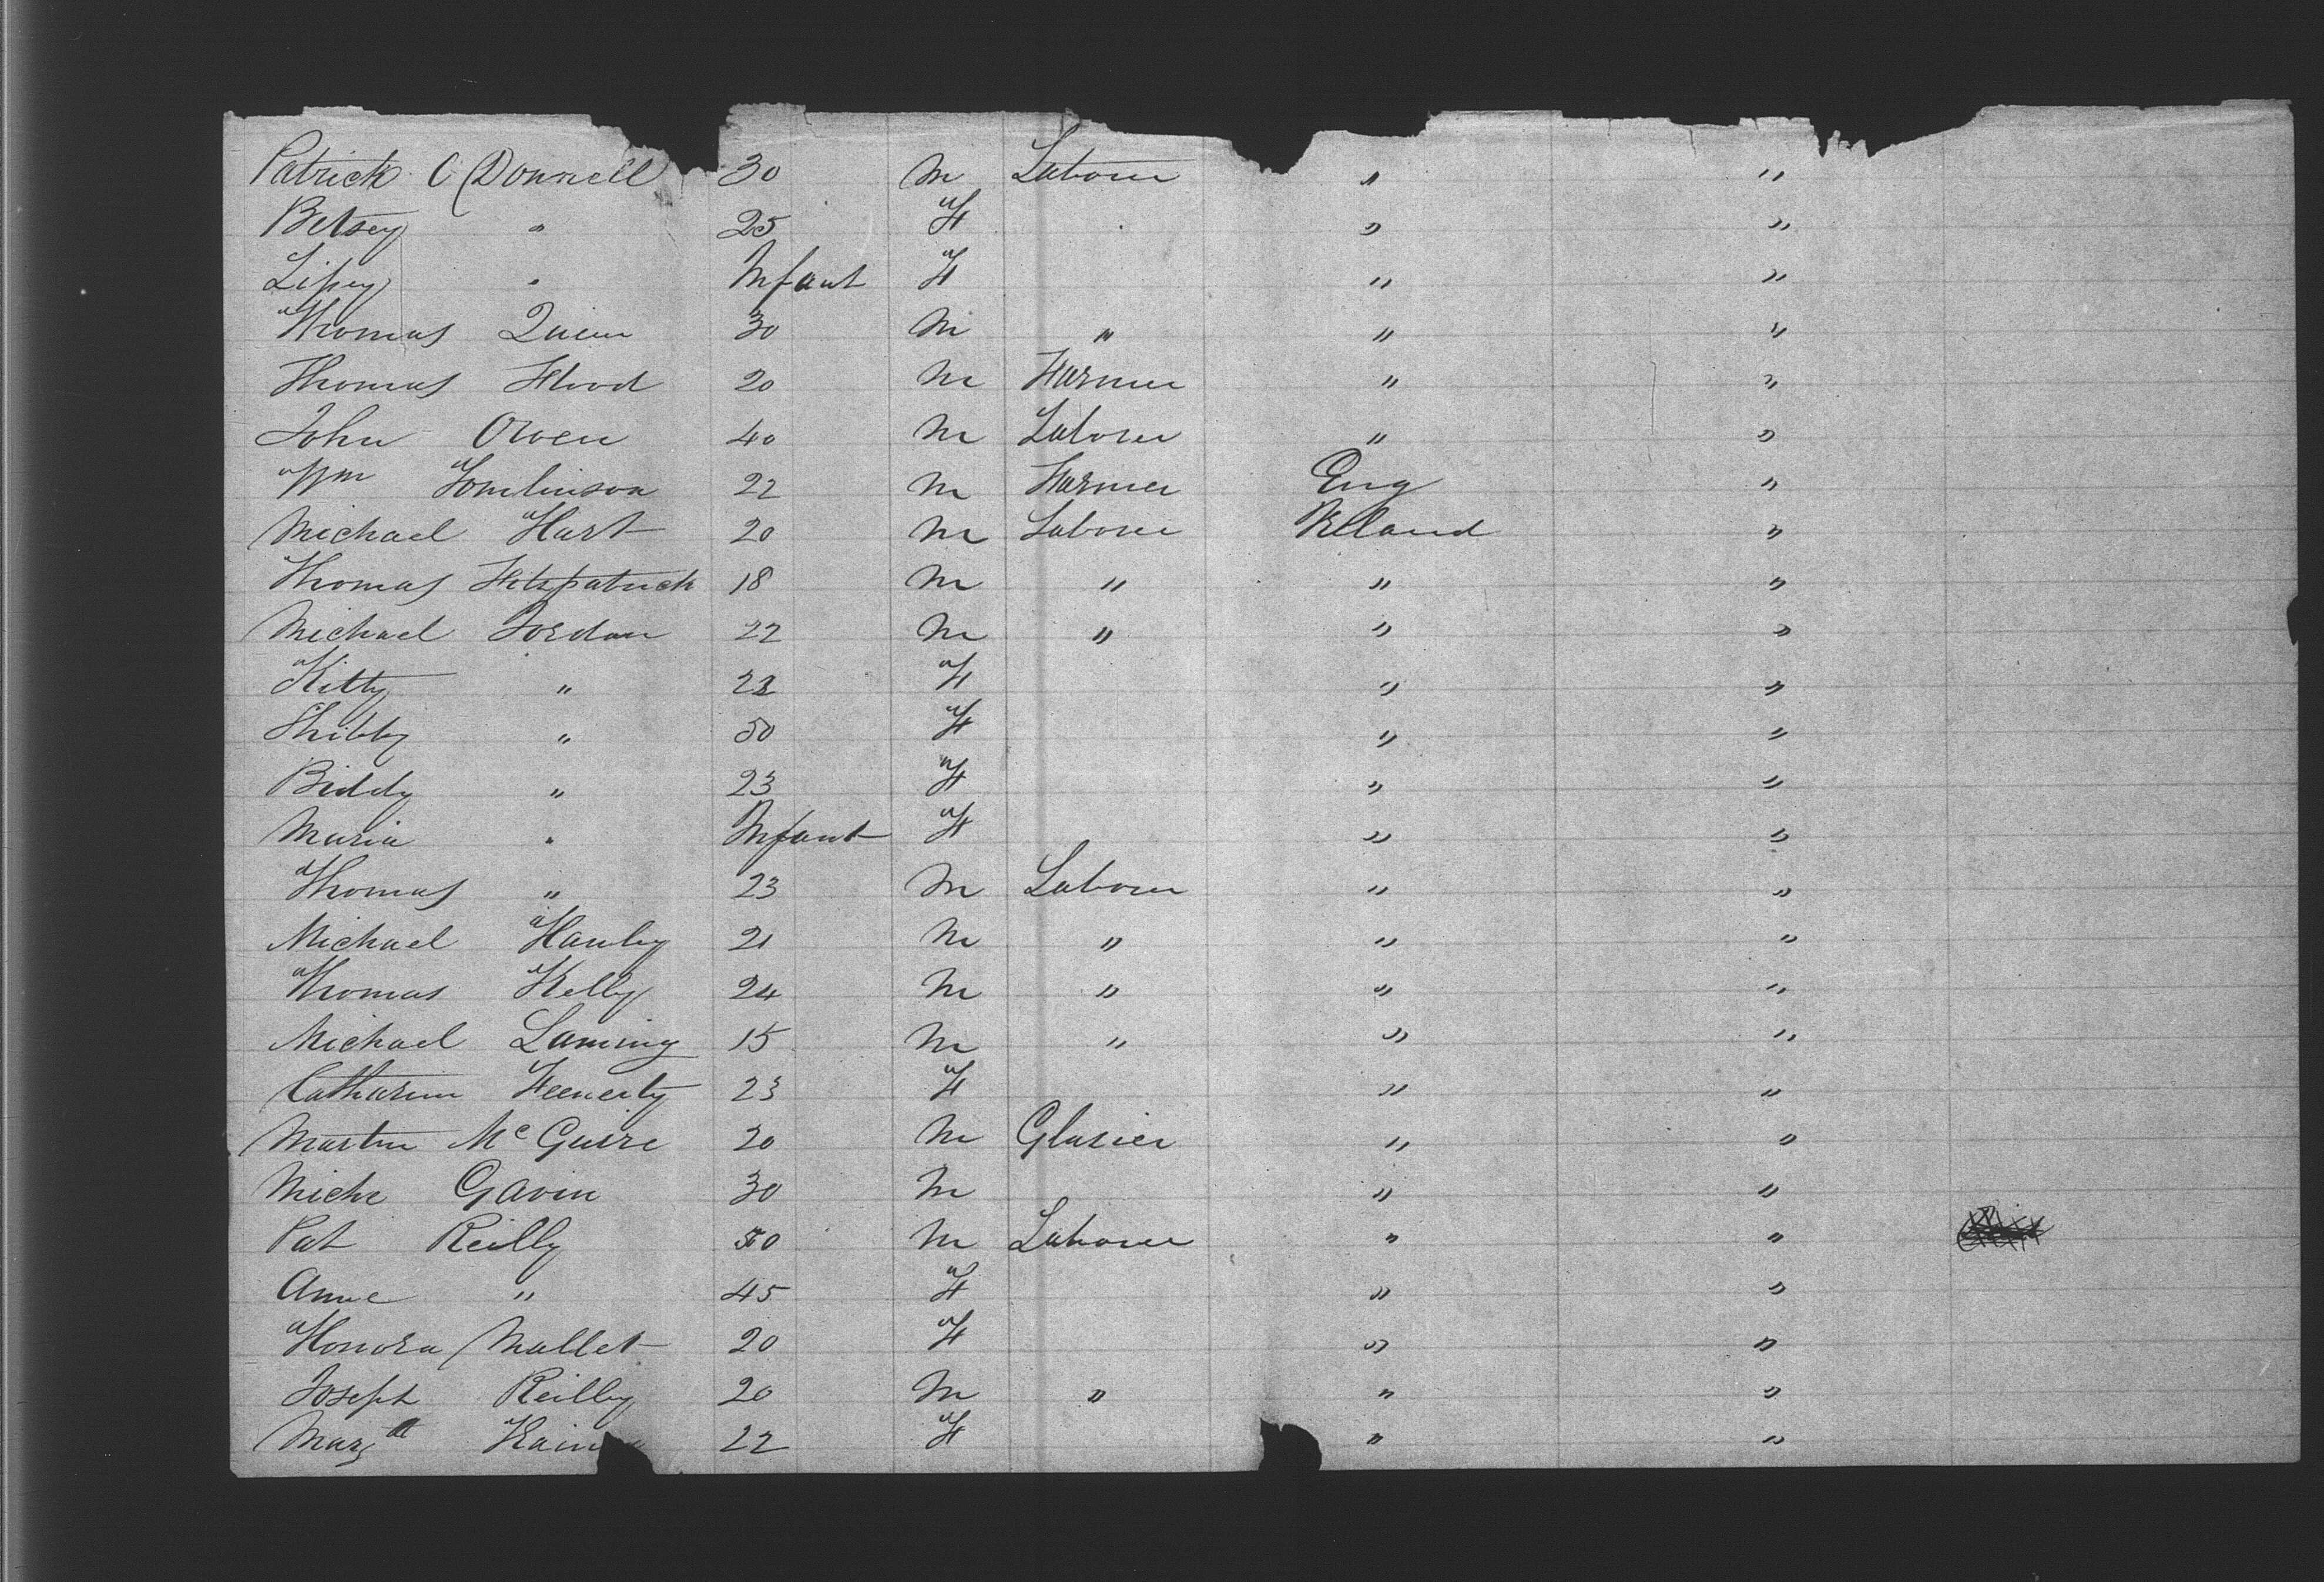 Patrick O Donnell 30 M Laborer " "
Betsey " 25 F " "
" Infant F " "
Thomas Quinn 30 M " " "
Thomas Flood 20 M Farmer " "
John Owen 40 M Laborer " "
Wm Tomlinson 22 M Farmer Eng "
Michael Hart 20 M Laborer Ireland "
Thomas Fitzpatrick 18 M " " "
Michael Jordan 22 M " " "
Kitty " 22 F " "
" 50 F " "
Biddy " 23 F " "
Maria " Infant F " "
Thomas " 23 M Laborer " "
Michael Hanley 21 M " " "
Thomas Kelly 24 M " " "
Michael 15 M " " "
Catharine Feenerty 23 F " "
Martin Mc Guire 20 M Glasier " "
Miche Gavin 30 M " "
Pat Reilly 50 M Laborer " "
Anne " 45 F " "
Honora Mallet 20 F " "
Joseph Reilly 20 M " " "
Margtt 22 F " "